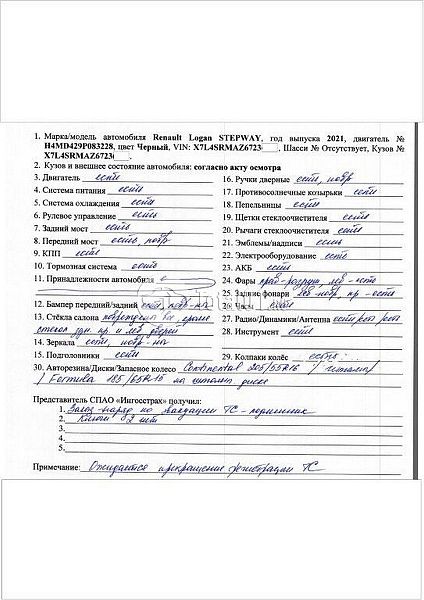 1. Марка/модель автомобиля Renault Logan STEPWAY, год выпуска 2021, двигатель №
H4MD429P083228, цвет Черный, VIN: X7L4SRMAZ6723, Шасси № Отсутствует, Кузов №
X7L4SRMAZ6723.
2. Кузов и внешнее состояние автомобиля: согласно акту осмотра
3. Двигатель есть
4. Система питания есть
5. Система охлаждения есть
6. Рулевое управление есть
7. Задний мост есть
8. Передний мост есть, повр
9. КПП есть
10. Тормозная система есть
11. Принадлежности автомобиля
12. Бампер передний/задний есть, повр-ны
13. Стёкла салона повреждена все кроме
стекол зди. пр. и лев. дверей
14. Зеркала есть, повр-ны
15. Подголовники есть
16. Ручки дверные есть, повр
17. Противосолнечные козырьки есть
18. Пепельницы есть
19. Щетки стеклоочистителя есть
20. Рычаги стеклоочистителя есть
21. Эмблемы/надписи есть
22. Электрооборудование есть
23. АКБ есть
24. Фары прав-разруш, лев-есть
25. Задние фонари лев-повр. пр-есть
26. Часы есть
27. Радио/Динамики/Антенна есть/есть/есть
28. Инструмент есть
29. Колпаки колёс есть
30. Авторезина/Диски/Запасное колесо Continental 205/55R16 / штатные
/ Formula 185/65R15 на штатном диске
Представитель СПАО «Ингосстрах» получил:
1. Заказ-наряд по эвакуации ТС - подлинник
2. Ключи 2 шт
3.
4.
5.
Примечание: Ожидается прекращение регистрации ТС